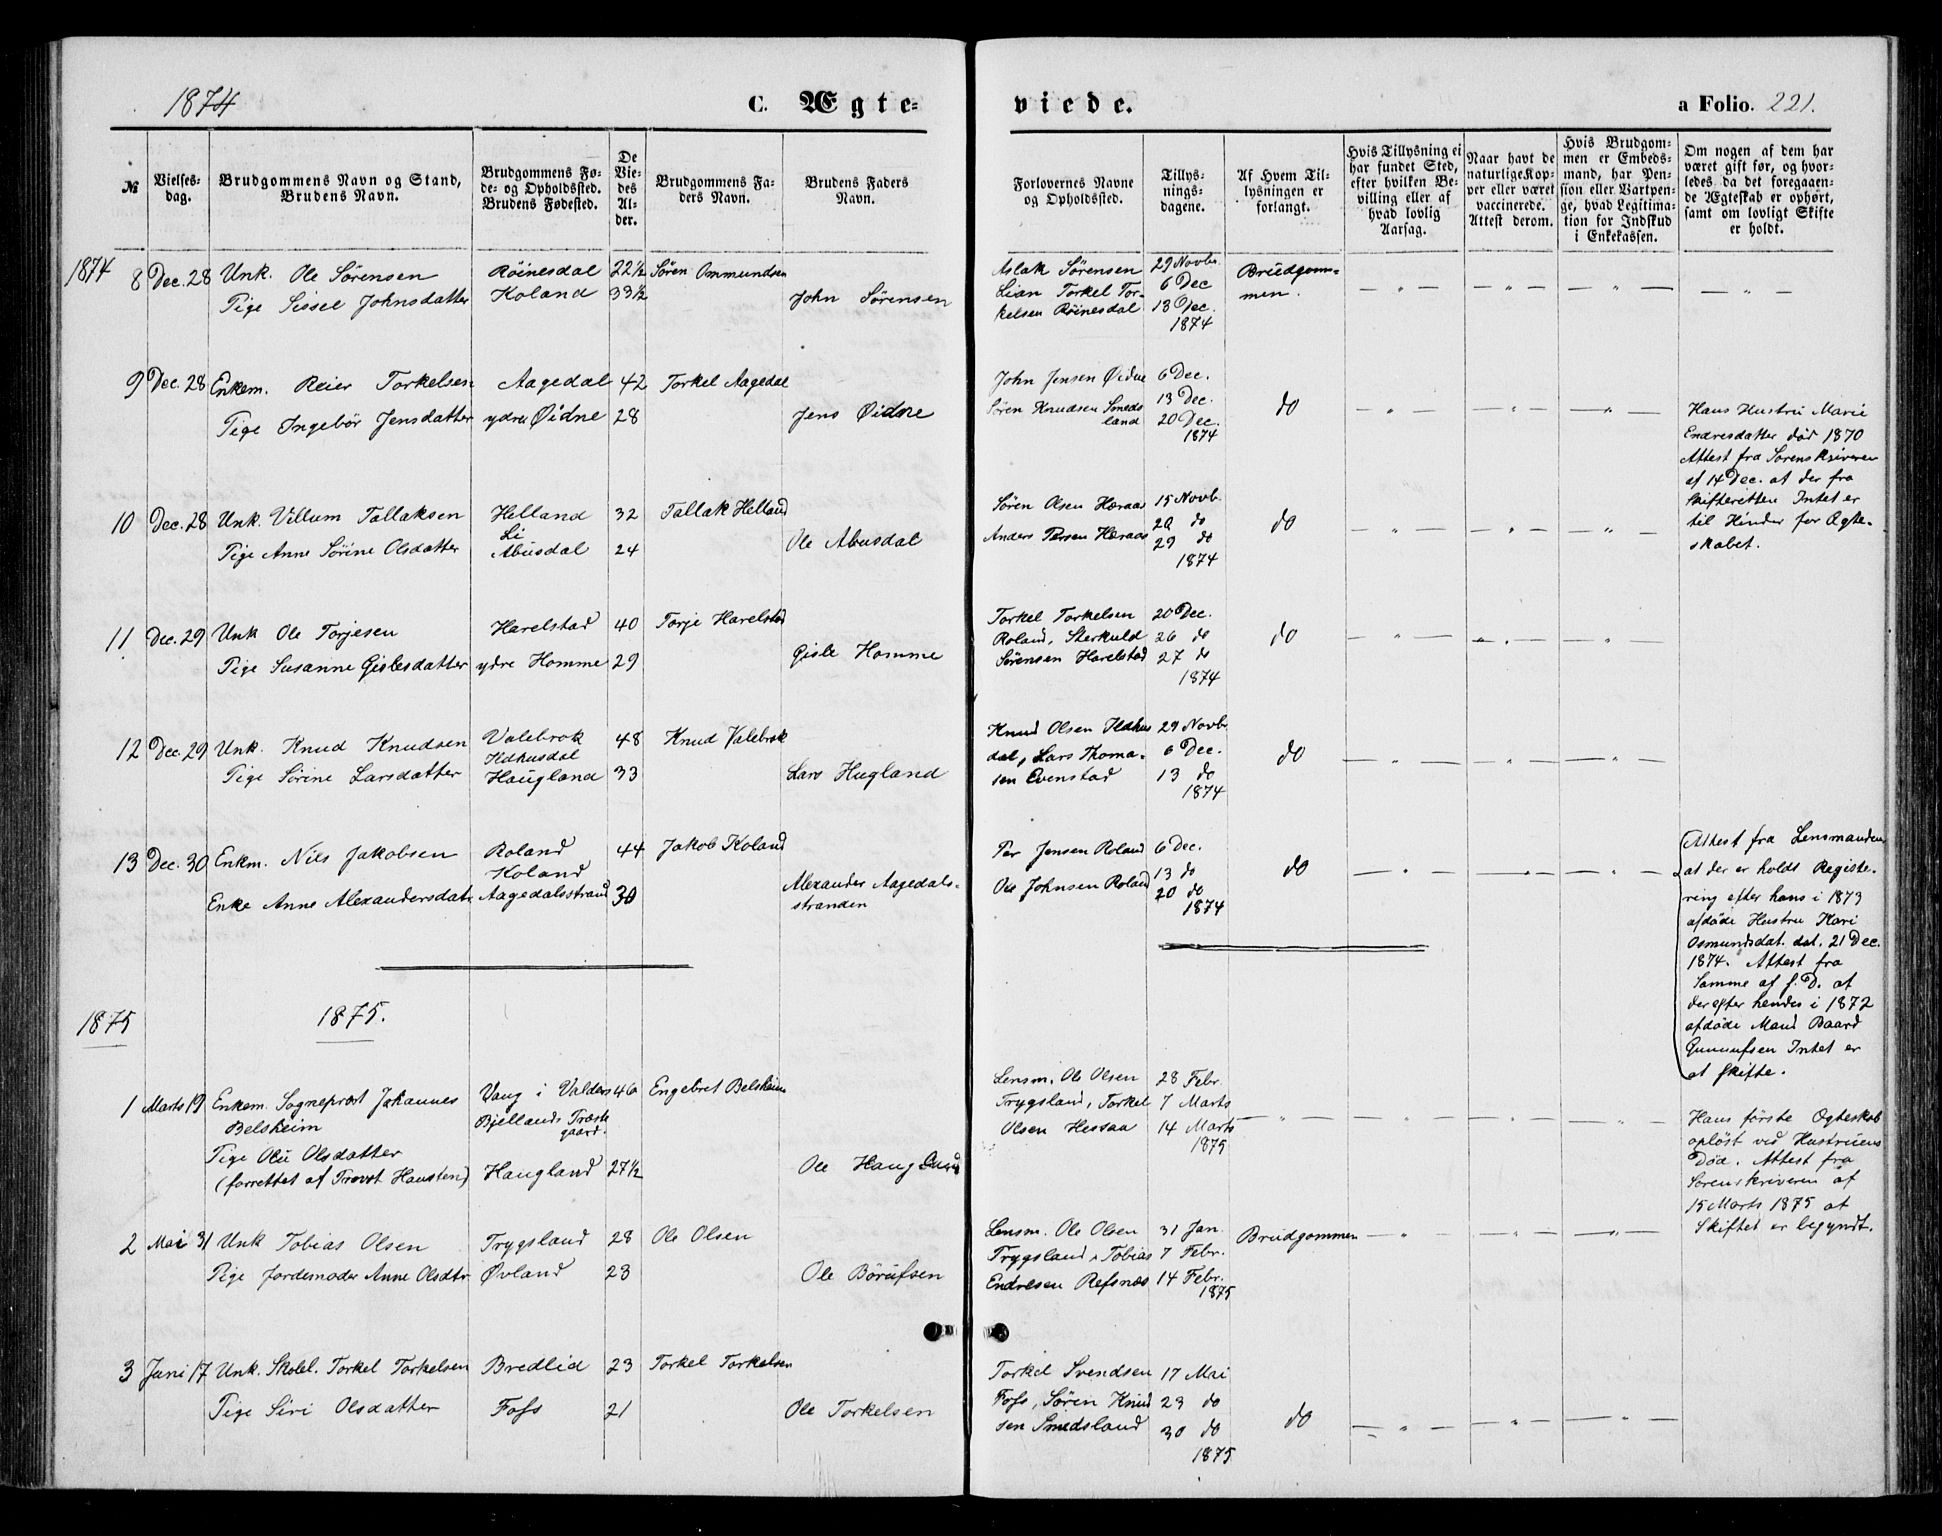 1874
C. Ægte=
viede.
a Folio. 221.
№
Vielses-
dag.
Brudgommens Navn og Stand,
Brudens Navn.
Brudgommens Fø-
de- og Opholdssted.
Brudens Fødested.
De
Vie-
des
Al-
der.
Brudgommens Fa-
ders Navn.
Brudens Faders
Navn.
Forlovernes Navne
og Opholdssted.
Tillys-
nings-
dagene.
Af Hvem Til-
lysningen er
forlangt.
Hvis Tillysning ei
har fundet Sted,
efter hvilken Be-
villing eller af
hvad lovlig
Aarsag.
Naar havt de
naturlige Kop-
per eller været
vaccinerede.
Attest derom.
Hvis Brudgom-
men er Embeds-
mand, har Pen-
sion eller Vartpen-
ge, hvad Legitima-
tion for Indskud
i Enkekassen.
Om nogen af dem har
været gift før, og hvor-
ledes da det foregaaen-
de Ægteskab er ophørt,
samt om lovligt Skifte
er holdt.
1874
8 Dec. 28 Unk. Ole Sørensen Röinesdal 22½ Søren Ommundsen
Pige Sissel Johnsdatter Koland 33½ John Sørensen
Aslak Sörensen 29 Novbr Brudgom-
Lian Torkel Tor- 6 Dec men. — „ — — „ — — „ — — „ —
kelsen Röinesdal 13 Dec.
1874
9 Dec. 28 Enkem. Reier Torkelsen Aagedal 42 Torkel Aagedal
Pige Ingebör Jensdatter ydre Øidne 28 Jens Øidne
John Jensen Øidne 6 Dec.
Søren Knudsen Smeds 13 Dec. do — „ — — „ — — „ —
land 20 Dec.
1874
Hans Hustru Marie
Endresdatter død 1870
Attest fra Sorenskriveren
af 14 Dec. at der fra
Skifteretten Intet er
til Hinder for Ægte-
skabet.
10 Dec. 28 Unk. Villum Tallaksen Helland 32 Tallak Helland
Li
Pige Anne Sörine Olsdatter Abusdal 24 Ole Abusdal
Søren Olsen Hæraas 15 Novb.
do do — „ — — „ — — „ —
Anders Persen Hæraas 29 do
1874
11 Dec. 29 Unk Ole Torjesen Harelstad 40 Torje Harelstad
Pige Susanne Gislesdatter ydre Homme 29 Gisle Homme
Torkel Torkelsen 20 Dec.
Roland, Sterkuld 26 do do — „ — — „ — — „ —
Sørensen Harelstad 27 do
1874
12 Dec. 29 Unk. Knud Knudsen Valebrok 48 Knud Valebrok
Ildhusdal
Pige Sörine Larsdatter Haugland 33 Lars Hugland
Knud Olsen Ildhus 29 Novbr
dal, Lars Thoma- 6 Dec. do — „ — — „ — — „ —
sen Evenstad 13 do
1874
13 Dec. 30 Enkm. Nils Jakobsen Roland 44 Jakob Koland
Koland
Enke Anne Alexandersdatr. Aagedalsstrand 30 Alexander Aagedals-
stranden
Per Jensen Roland 6 Dec.
13 do do — „ — — „ — — „ —
Ole Johnsen Roland 20 do
1874
Attest fra Lensmanden
at der er holdt Registe-
ring efter hans i 1873
afdöde Hustru Kari
Osmundsdat. dat. 21 Dec.
1874. Attest fra
Samme af s. D. at
der efter hendes i 1872
afdöde Mand Baard
Gunuufsen Intet er
at skifte.
1875
1875.
1 Marts 19 Enkem. Sogneprest Johannes Vang i Valders 46 Engebret Belsheim
Belsheim Bjellands Præste
gaard.
Pige Olu Olsdatter
(forrettet af Provst Hansten) Haugland 27½ Ole Haugland
Lensm. Ole Olsen 28 Febr.
Trygsland, Torkel 7 Marts — „ — — „ — — „ — — „ —
Olsen Hessaa 14 Marts
1875
Hans første Ægteskab
opløst ved Hustruens
Död. Attest fra
Sorenskriveren af
15 Marts 1875 at
Skiftet er begyndt.
2 Mai 31 Unk Tobias Olsen Trygsland 28 Ole Olsen
Pige Jordemoder Anne Olsdtr. Øvland 23 Ole Börufsen
Lensm. Ole Olsen 31 Jan. Brudgommen — „ — — „ — — „ —
Trygsland, Tobias 7 Febr.
Endresen Refsnæs 14 Febr.
1875
3 Juni 17 Unk. Skolel. Torkel Torkelsen Bredlid 23 Torkel Torkelsen
Pige Siri Olsdatter Foss 21 Ole Torkelsen
Torkel Svendsen 17 Mai
Foss, Sören Knud 23 do do — „ — — „ — — „ —
sen Smedsland 30 do
1875